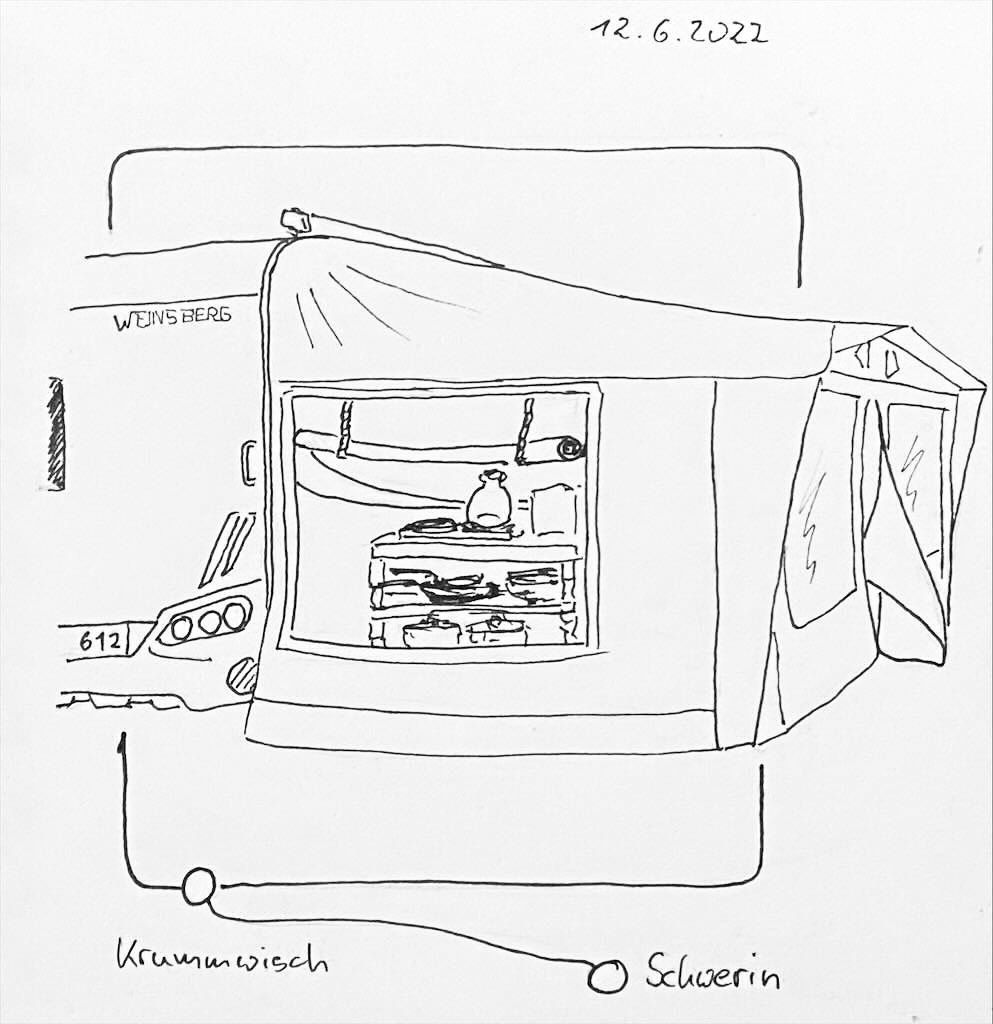 12.6.2022
WEINSBERG
612
Krummwisch
Schwerin